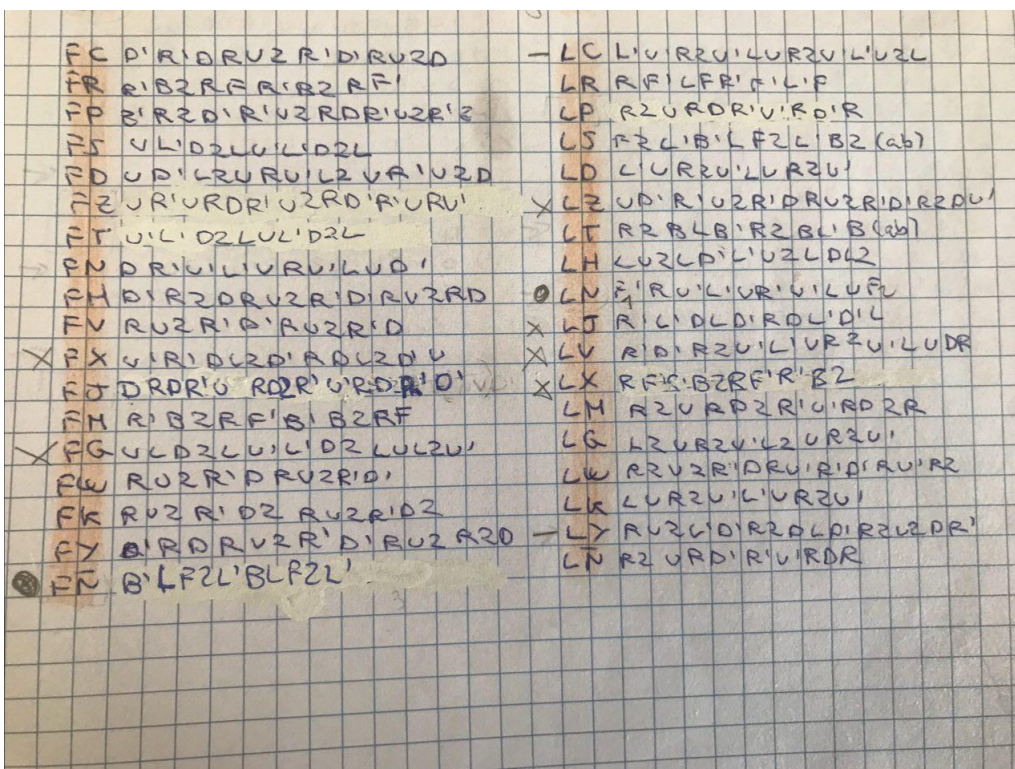 FC D'R'DRU2R'D'RU2D
FR R'B2RFR'B2RF'
FP B'R2D'R'U2RDR'U2R'B
FS UL'D2LU'L'D2L
FD UD'L2URU'L2UR'U2D
FZ UR'URDR'U2RD'R'URU'
FT U'L'D2LUL'D2L
FN DR'U'L'URU'LUD'
FH D'R2DRU2R'D'RU2RD
FV RU2R'D'RU2R'D
X FX U'R'DL2D'RDL2D'U
FJ DRDR'U RD2R'U'RDR'D'
FM R'B2RF'B'B2RF
X FG ULD2LU'L'D2LUL2U'
FW RU2R'DRU2R'D'
FK RU2R'D2RU2R'D2
FY D'RDRU2R'D'RU2R2D
FÑ B'LF2L'BLF2L'
- LC L'U'R2U'LUR2U'L'U2L
LR RF'LFR'F'L'F
LP R2URDR'U'RD'R
LS F2L'B'LF2L'B2(ab)
LD L'UR2U'LUR2U'
X LZ UD'R'U2R'DRU2R'D'R2DU'
LT R2BLB'R2BL'B(ab)
LH LU2LD'L'U2LDL2
LN RU'L'UR'U'LU
X LJ R'L'DLD'RDL'D'L
X LV R'D'R2U'L'UR2U'LUDR
X LX B2RF'R'B2
LM R2URD2R'U'RD2R
LG L2UR2U'L2UR2U'
LW R2U2R'DRU'R'D'RU'R2
LK LUR2U'L'UR2U'
- LY RU2L'D'R2DLD'R2U2DR'
LÑ R2URD'R'U'RDR